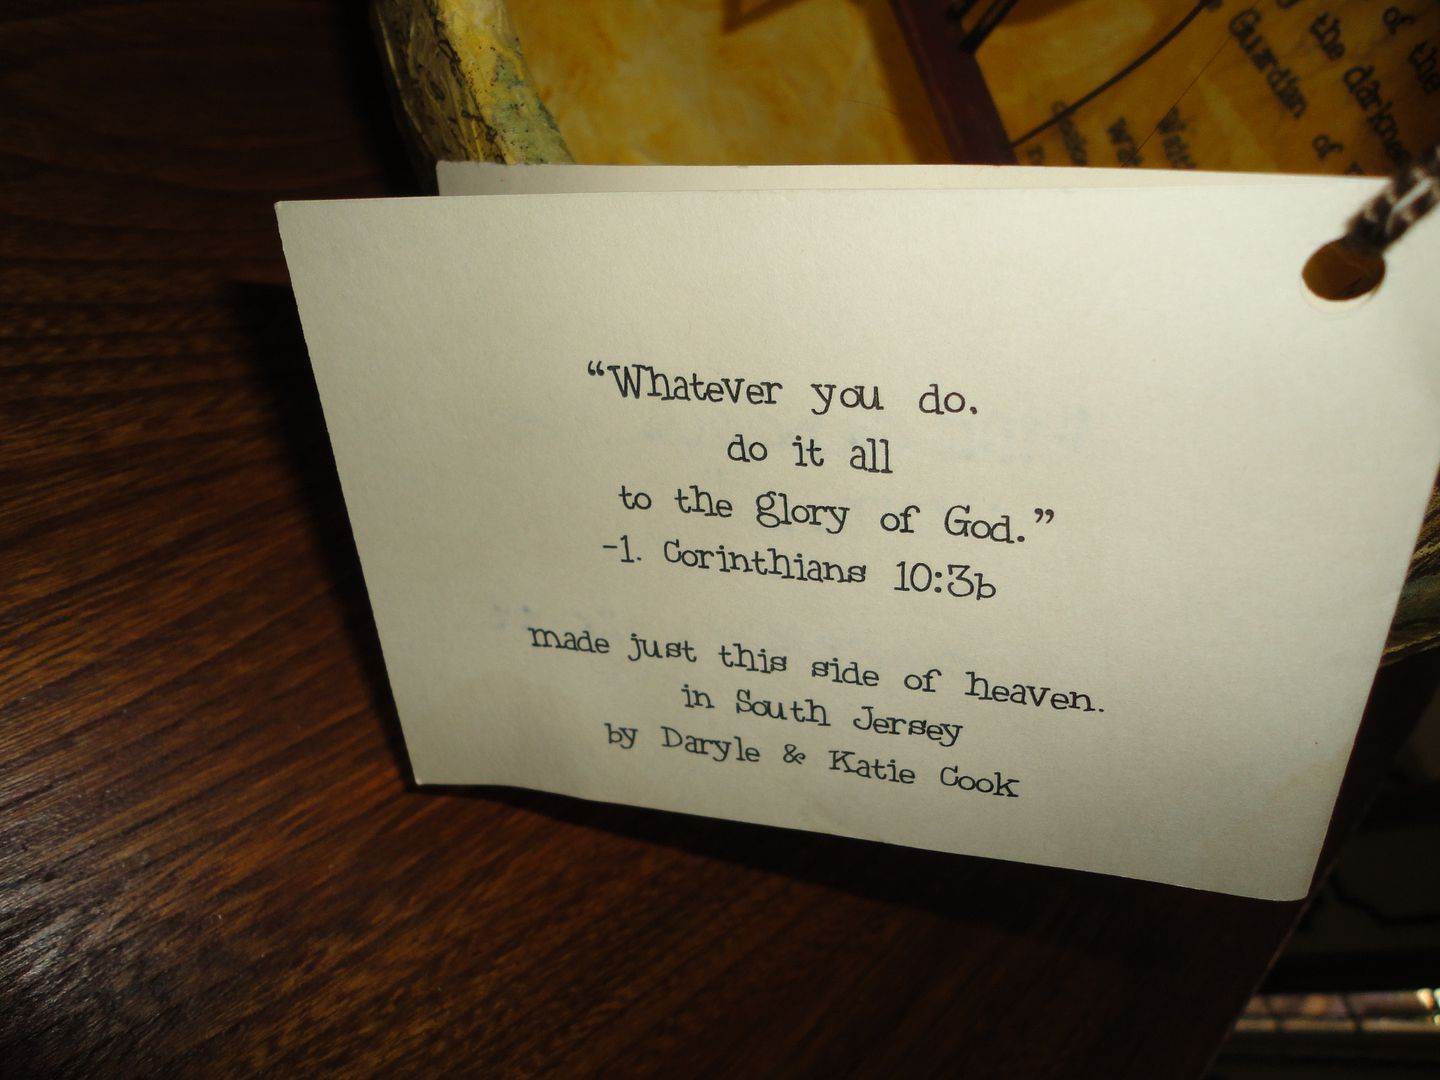 of the
the darkne
Guardian of
With
“Whatever you do.
do it all
to the glory of God.”
-1. Corinthians 10:3b
made just this side of heaven.
in South Jersey
by Daryle & Katie Cook